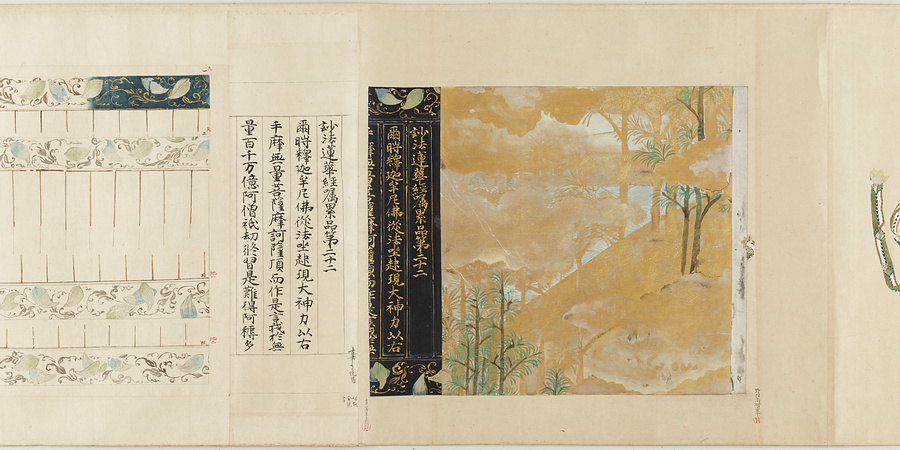 妙法蓮華經嘱累品第二十二
爾時釋迦牟尼佛從法坐起現大神力以右
妙法蓮華經嘱累品第二十二
爾時釋迦牟尼佛從法坐起現大神力以右
手摩無量菩薩摩訶薩頂而作是言我於無
量百千万億阿僧祇劫修習是難得阿耨多